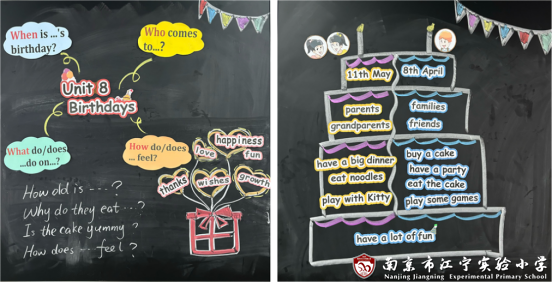 When is ...'s
birthday?
Who comes
to...?
Unit 8
Birthdays
What do/does
... do on...?
How do/does
... feel?
happiness
love
fun
thanks
wishes
growth
How old is ---?
Why do they eat ...?
Is the cake yummy?
How does -- feel?
11th May
8th April
parents
grandparents
families
friends
have a big dinner
eat noodles
play with Kitty
buy a cake
have a party
eat the cake
play some games
have a lot of fun
南京市江宁实验小学
Nanjing Jiangning Experimental Primary School